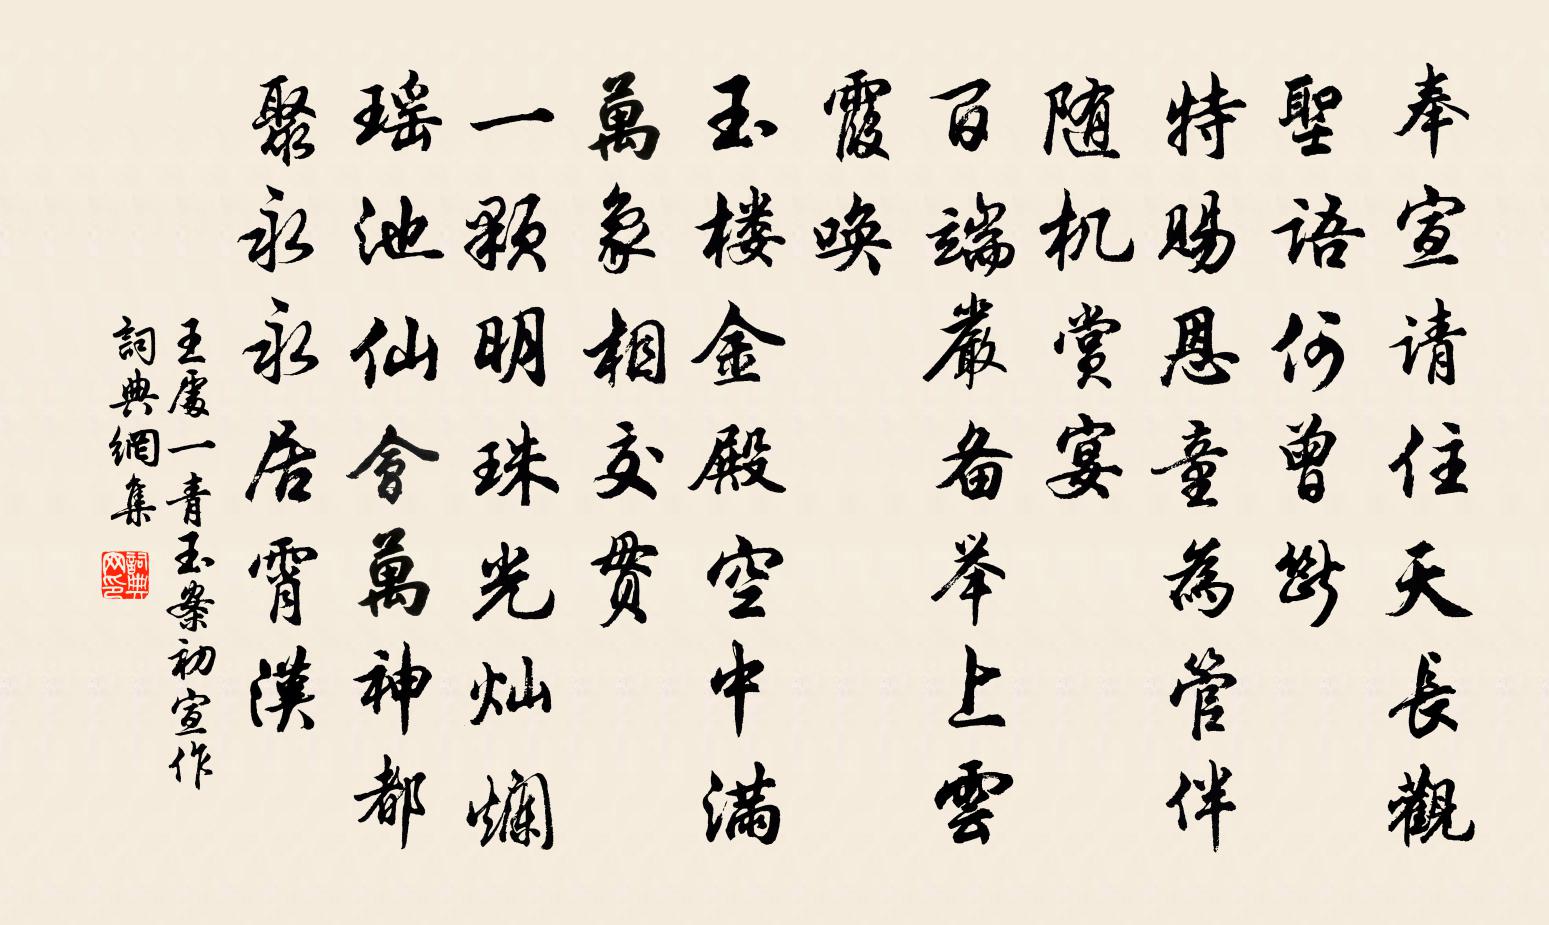 奉宣请住天長觀
聖語何曾斷
特賜恩童為管伴
随机赏宴
百端嚴备举上雲
霞唤
玉楼金殿空中满
萬象相交贯
一顆明珠光灿爛
瑶池仙會萬神都
聚永永居霄漢
王處一青玉案初宣作
詞典網集
詞典网印